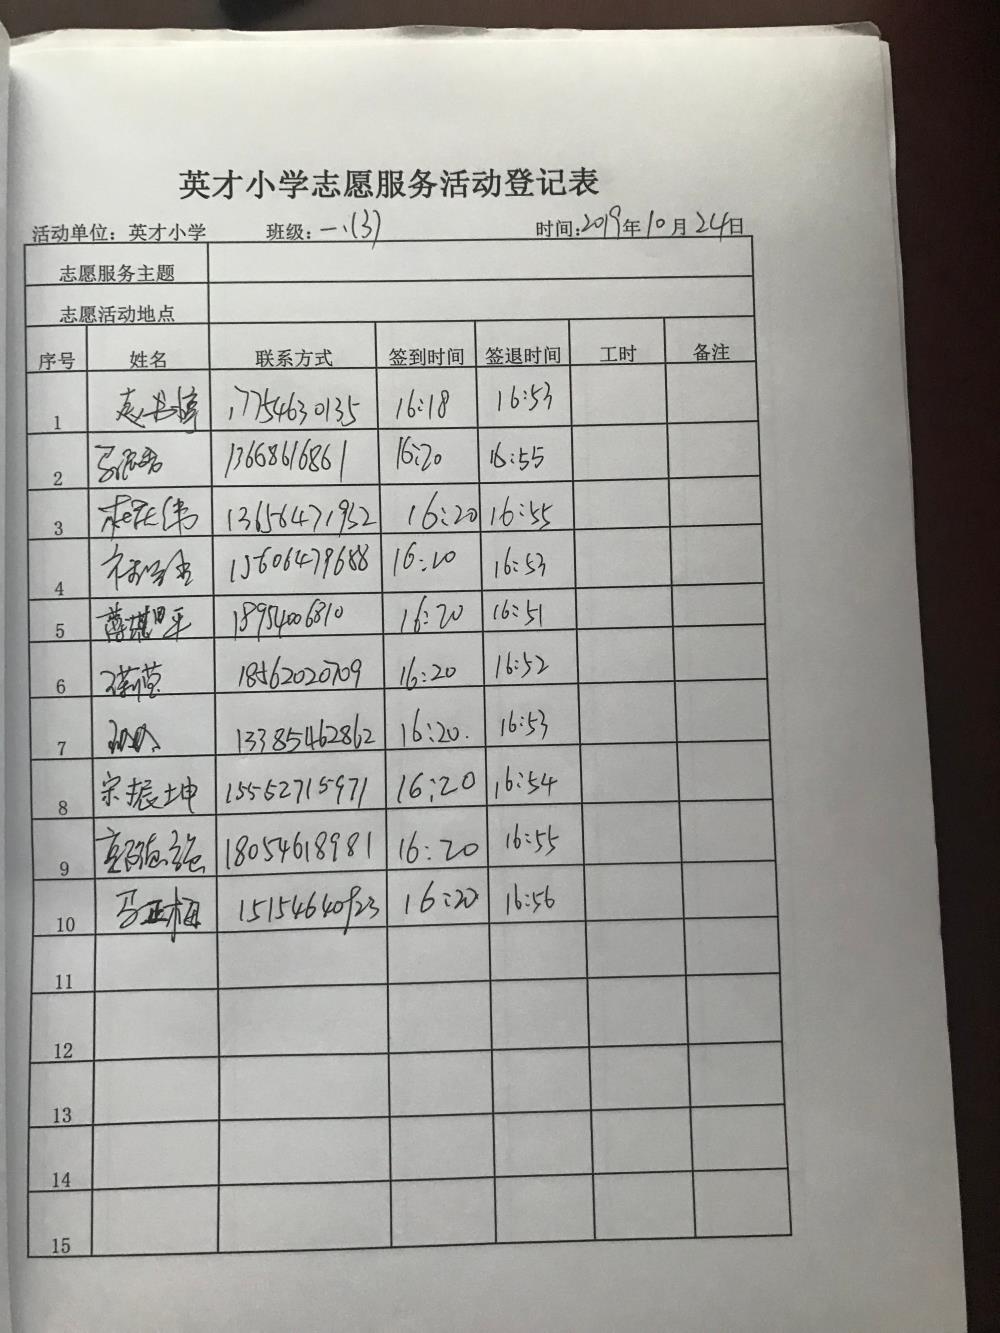 英才小学志愿服务活动登记表
活动单位：英才小学 班级：一.(3) 时间：2019年10月24日
志愿服务主题
志愿活动地点
序号 姓名 联系方式 签到时间 签退时间 工时 备注
1 17754630135 16:18 16:53
2 13668616861 16:20 16:55
3 13656471952 16:20 16:55
4 15606479688 16:20 16:53
5 18954006810 16:20 16:51
6 18562020709 16:20 16:52
7 13385462862 16:20. 16:53
8 宋振坤 15552715971 16:20 16:54
9 18054618981 16:20 16:55
10 马亚梅 16:20 16:56
11
12
13
14
15